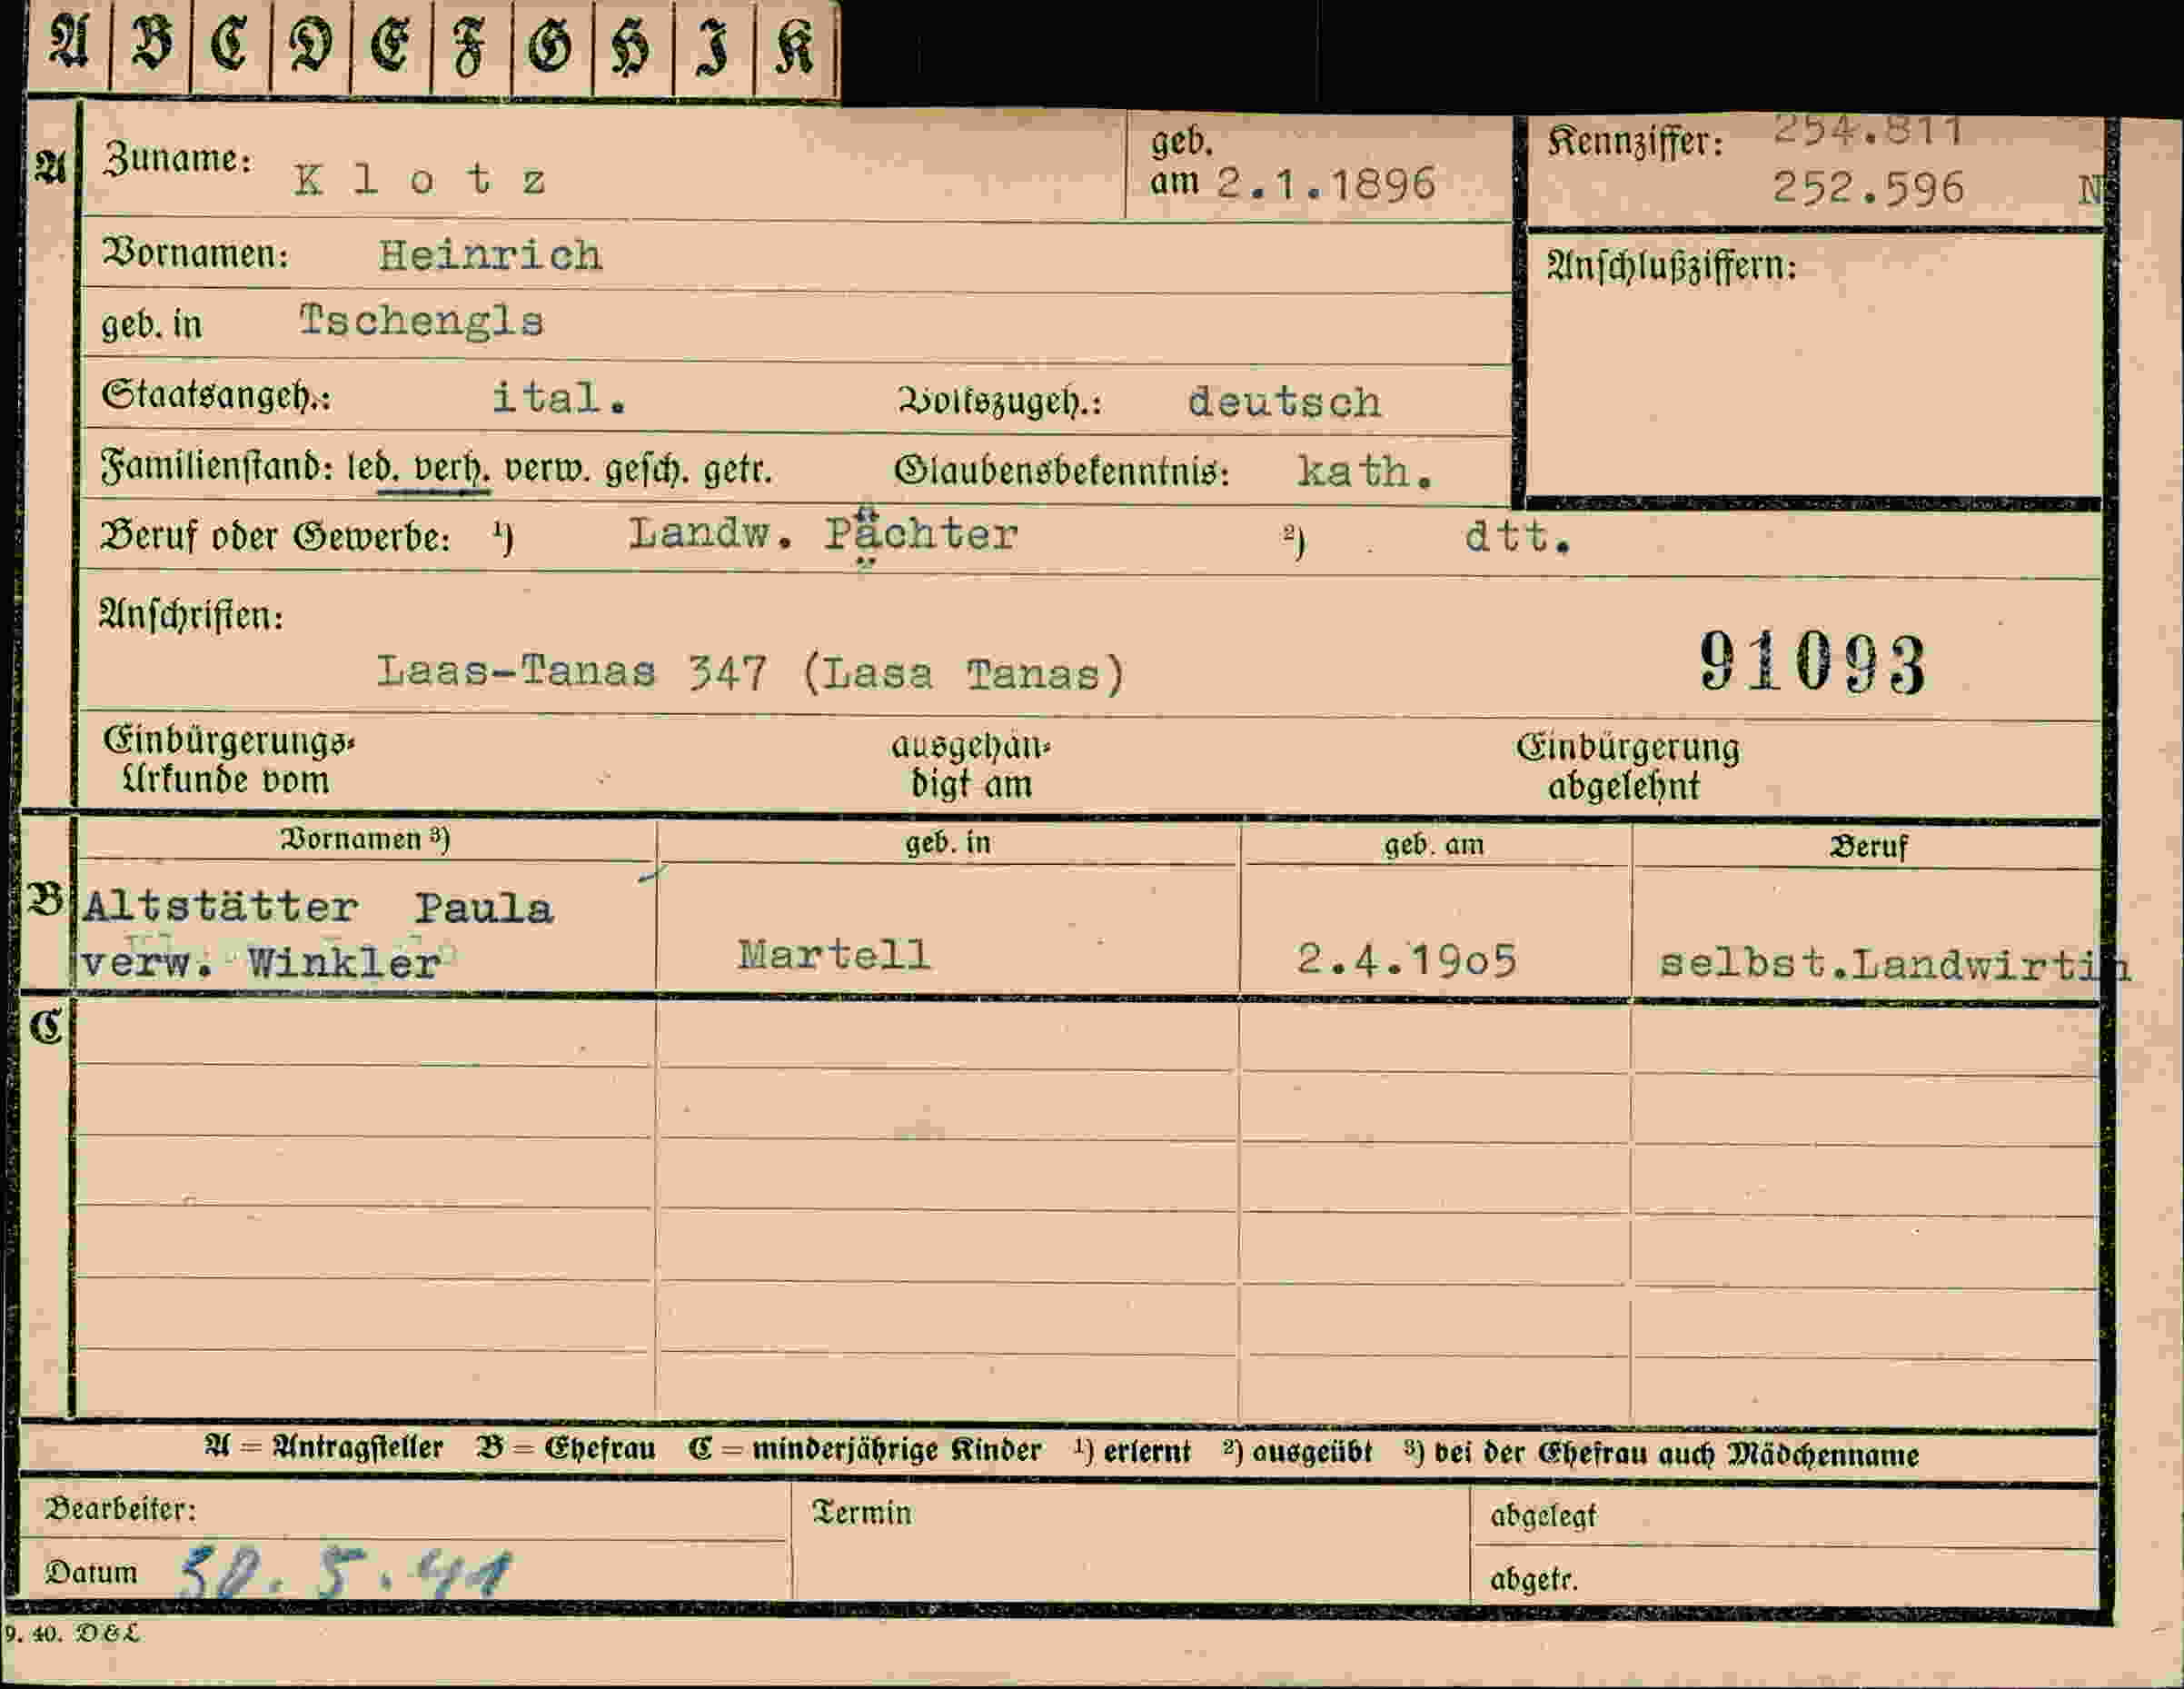 A B C D E F G H I K
A Zuname: Klotz geb. am 2.1.1896 Kennziffer: 254.811
252.596 N
Vornamen: Heinrich Anschlußziffern:
geb. in Tschengls
Staatsangeh.: ital. Volkszugeh.: deutsch
Familienstand: led. verh. verw. gesch. getr. Glaubensbekenntnis: kath.
Beruf oder Gewerbe: ¹) Landw. Pächter ²) dtt.
Anschriften:
Laas-Tanas 347 (Lasa Tanas) 91093
Einbürgerungs- ausgehän- Einbürgerung
Urkunde vom digt am abgelehnt
Vornamen ³) geb. in geb. am Beruf
B Altstätter Paula
verw. Winkler Martell 2.4.19o5 selbst.Landwirtin
C
A = Antragsteller B = Ehefrau C = minderjährige Kinder ¹) erlernt ²) ausgeübt ³) bei der Ehefrau auch Mädchenname
Bearbeiter: Termin abgelegt
Datum 30.5.41 abgetr.
9. 40. D & L